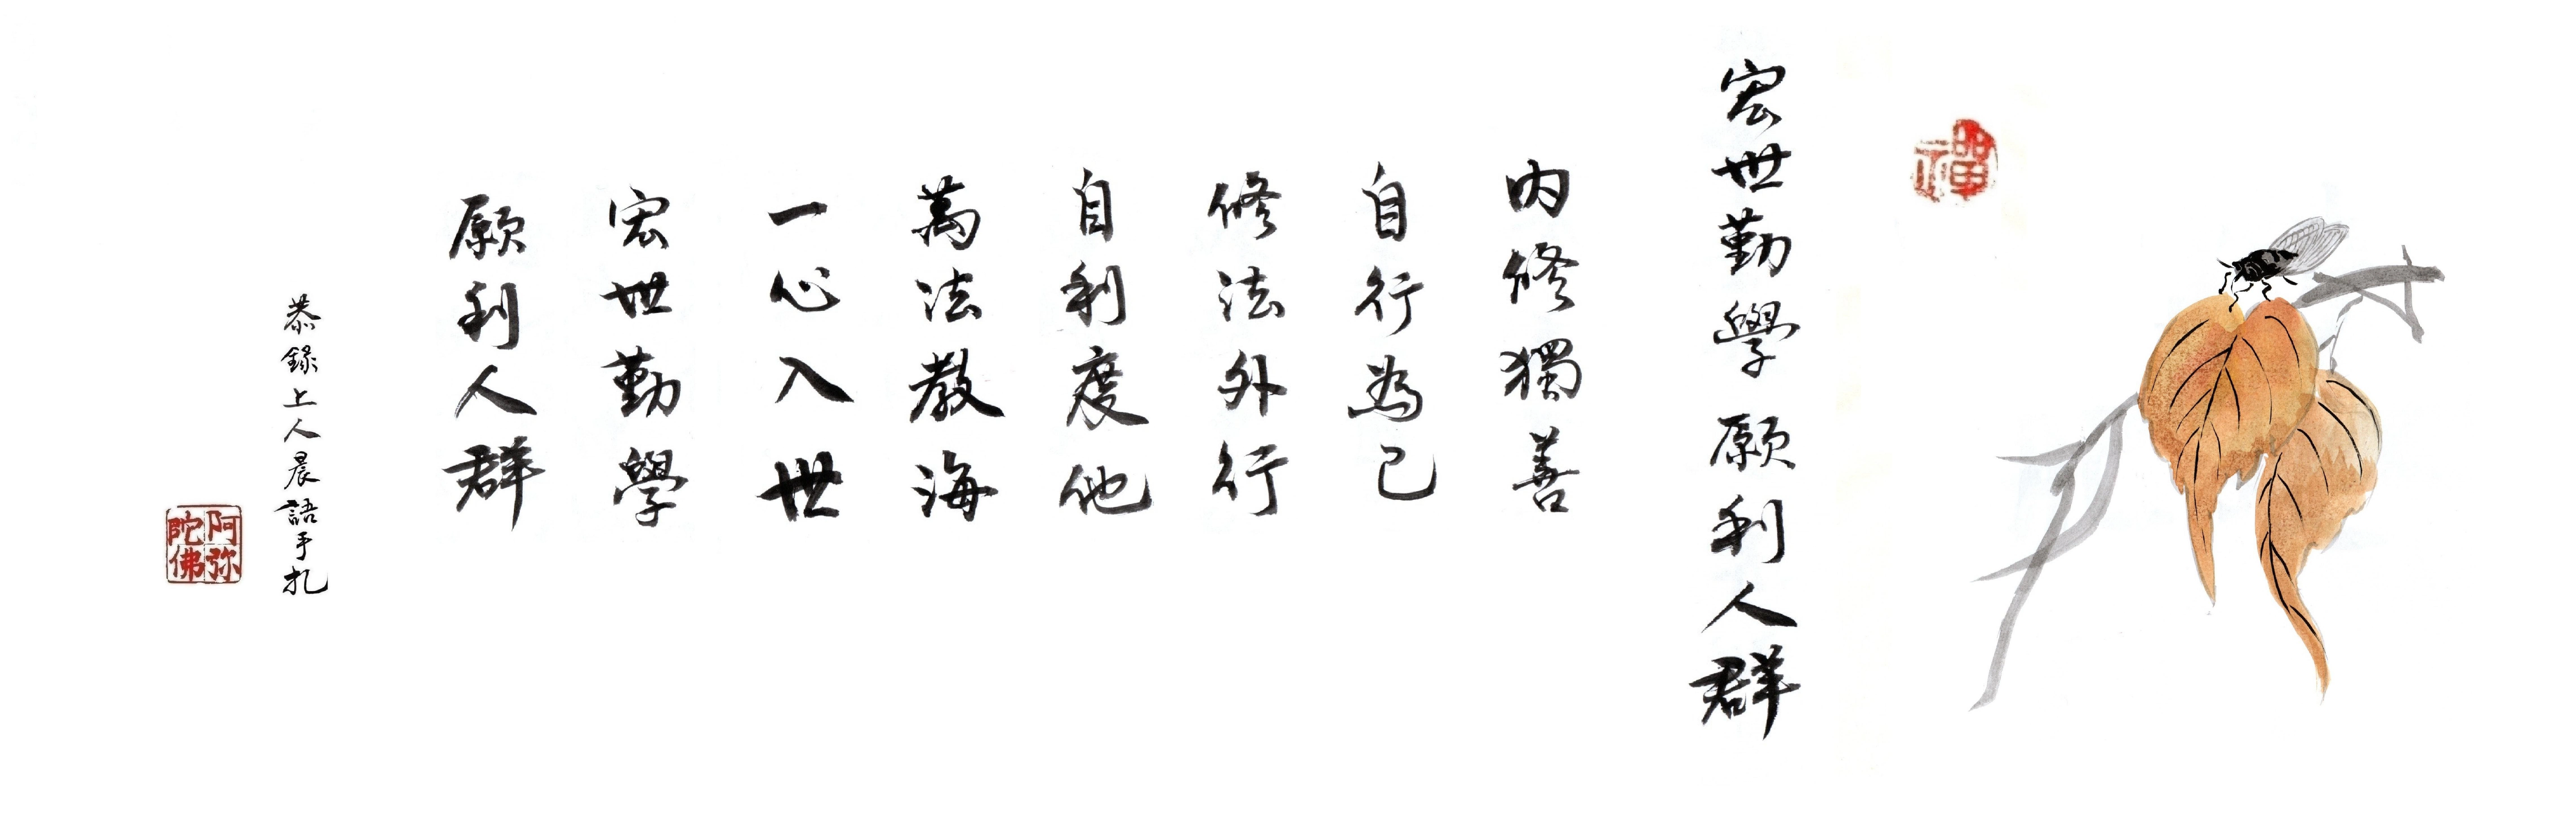 禪
宏世勤學願利人群
内修獨善
自行為己
修法外行
自利度他
萬法教海
一心入世
宏世勤學
願利人群
恭錄上人晨語手扎
阿弥陀佛